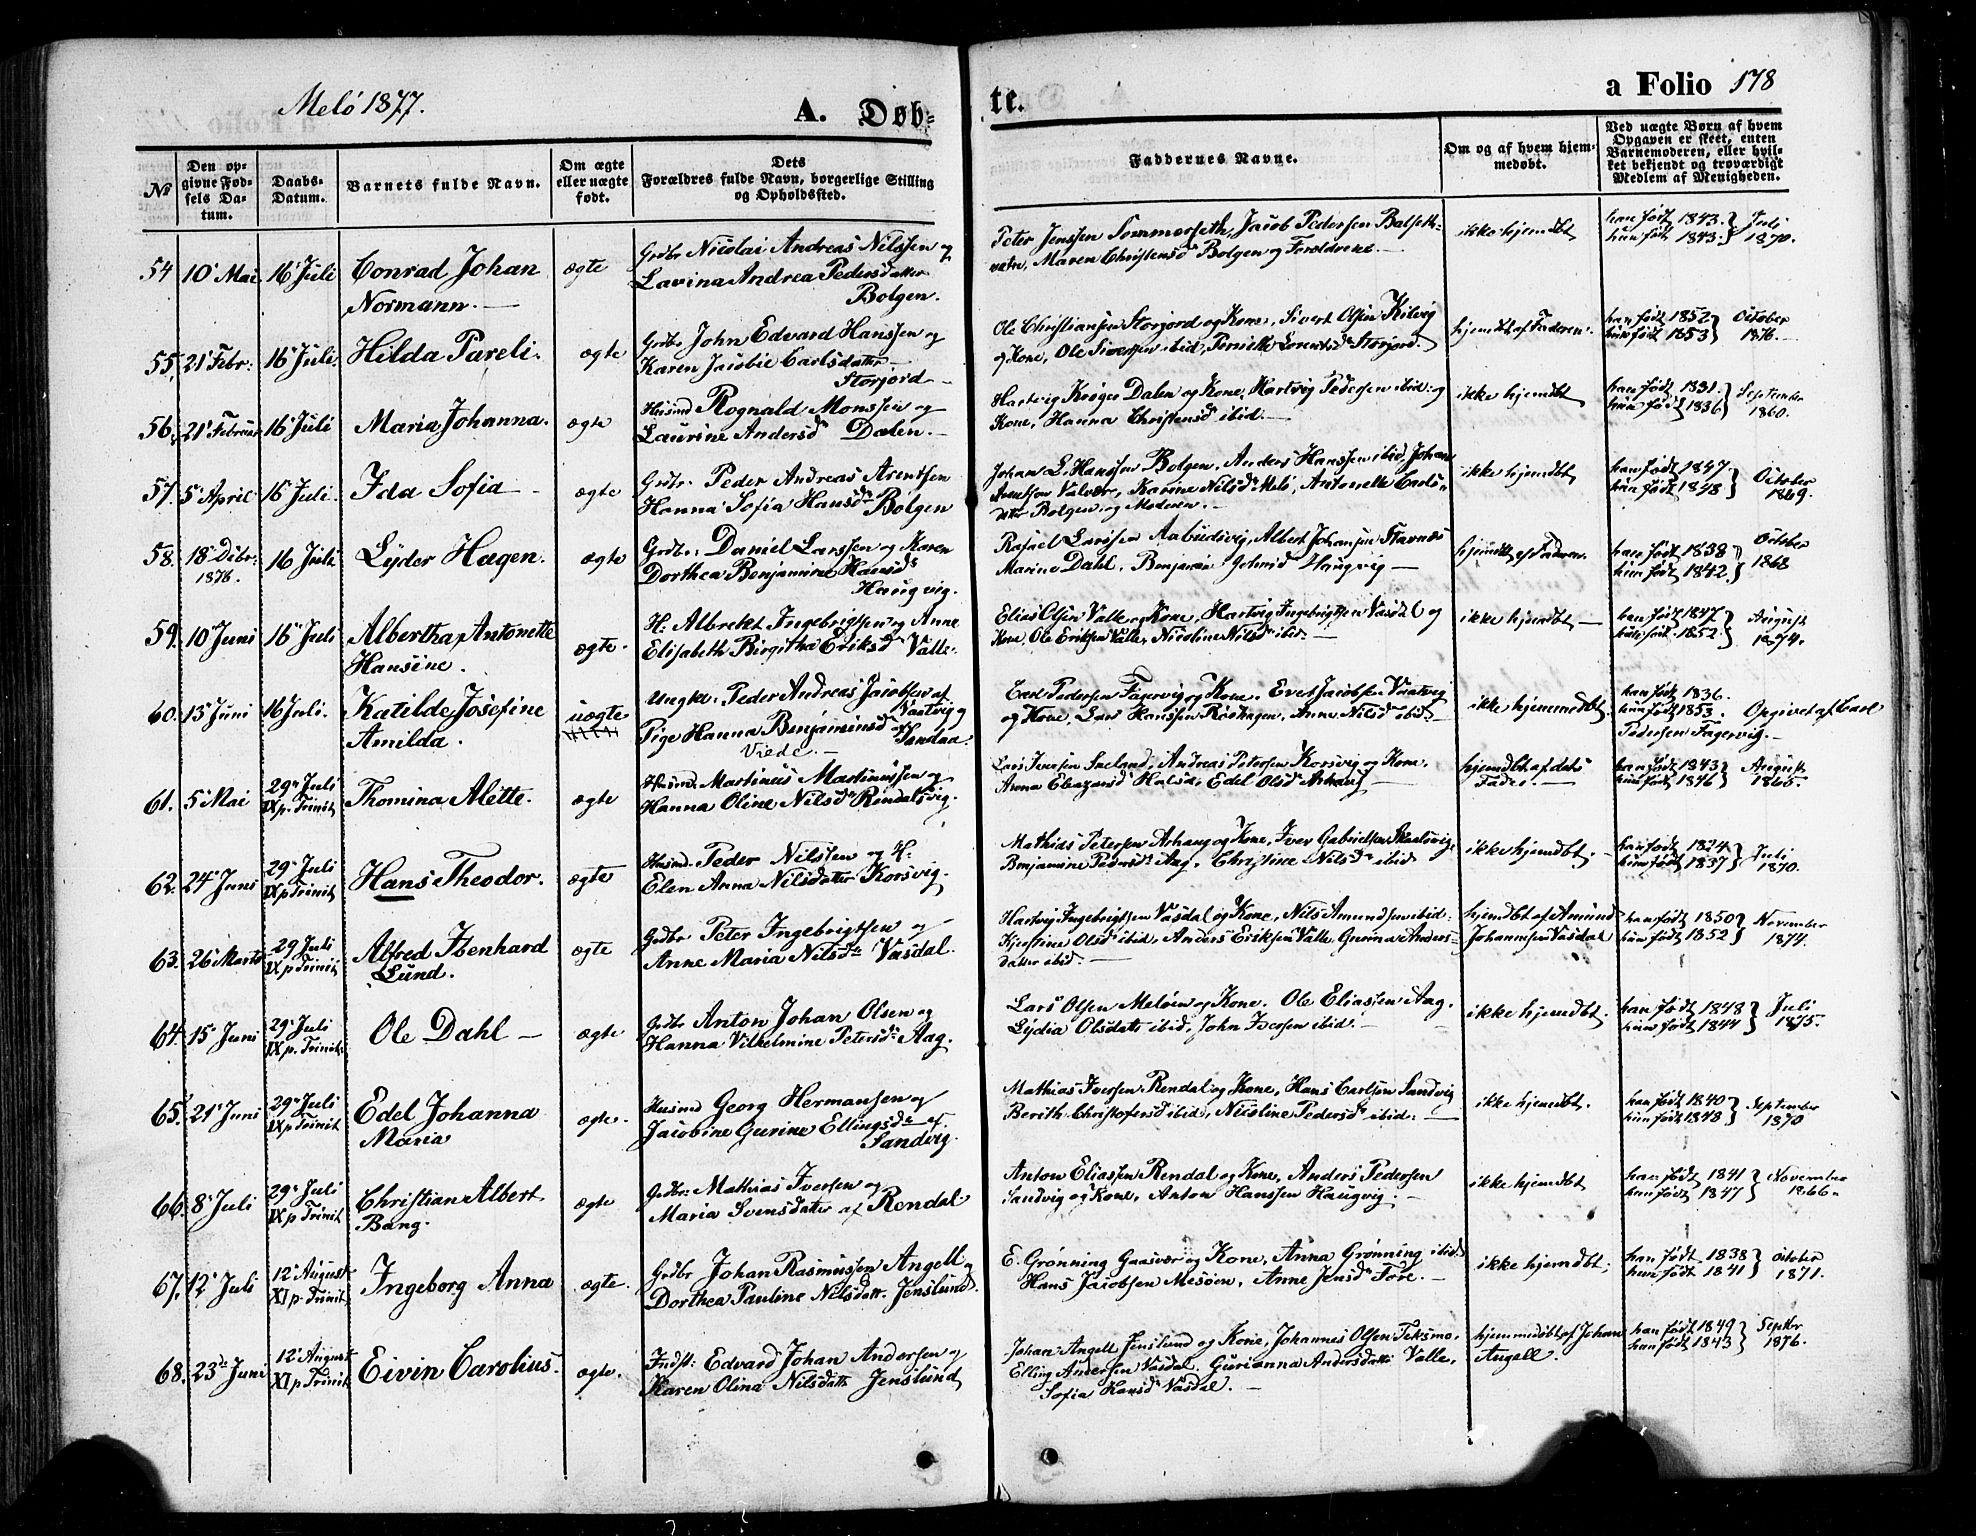 Melö 1877.
A. Døb-
te.
a Folio 178
No
Den opgivne Fødsels Datum.
Daabs-Datum.
Barnets fulde Navn.
Om ægte eller uægte født.
Dets Forældres fulde Navn, borgerlige Stilling og Opholdssted.
Faddernes Navne.
Om og af hvem hjemmedøbt.
Ved uægte Børn af hvem Opgaven er skeet, enten Barnemoderen, eller hvilket bekjendt og troværdigt Medlem af Menigheden.
54 10 Mai 16 Juli Conrad Johan Normann. ægte Grdbr Nicolai Andreas Nilssen og Lavina Andrea Pedersdatter Bolgen. Peter Jenssen Sommerseth, Jacob Pedersen Balseth- Maren Christensd Bolgen og Forældrene. ikke hjemdbt han født 1843. hun født 1843. Juli 1870.
55. 21 Febr: 16 Juli Hilda Pareli. ægte Grdbr John Edvard Hanssen og Karen Jacobie Carlsdatter Storjord Ole Christiansen Storjord og Kone, Sivert Olsen Kilvig og Kone, Ole Sivertsen ibid, Pernille Lorentsd Storjord. hjemdbt af Faderen. han født 1852 hun født 1853 October 1876.
56. 21 Februar 16 Juli Maria Johanna. ægte Husmd Rognald Monssen og Laurine Andersd Dalen. Hartvig Krøger Dalen og Kone, Hartvig Pedersen ibid: og Kone, Hanna Christensd ibid. ikke hjemdbt han født 1831 hun født 1836 September 1860.
57. 5 April 16 Juli. Ida Sofia ægte Grdbr. Peder Andreas Arentsen Hanna Sofia Hansd Bolgen Johan L. Hanssen Bolgen, Anders Hanssen ibid, Johan Arentsen Valvær, Karine Nilsd Melö, Antonette Carlsdatter Bolgen, og Moderen. ikke hjemdbt han født 1847 hun født 1848 October 1869.
58. 18 Debr: 1876. 16 Juli Lyder Hagen. ægte Grdbr: Daniel Larssen og Karen Dorthea Benjamine Hansd Haugvig. Rafael Larssen Aabudvig, Albert Johansen Stavnæs Marine Dahl, Benjamin Haugvig hjemdbt af Faderen. han født 1838 hun født 1842. October 1868
59. 10 Juni 16 Juli Albertha Antonette Hansine. ægte. H: Albrekt Ingebrigtsen og Anne Elisabeth Birgitha Eriksd Valle. Elias Olsen Valle og Kone, Hartvig Ingebrigtsen Vasdal og Kone, Ole Eriksen Valle, Nicoline Nilsd ibid. ikke hjemdbt han født 1847 hun født 1852. August 1874.
60. 13 Juni 16 Juli. Katilde Josefine Amilda. uægte Ungk. Peder Andreas Jacobsen af Vaatvig og Pige Hanna Benjaminsd af Sandaa. Viede. Carl Pedersen Fagervig og Kone, Evert Jacobsen Vaatvig og Kone, Lars Hanssen Röshagen, Anne Nilsd ibid ikke hjemmedbt. han født 1836. hun født 1853. Opgivet af Carl Pedersen Fagervig.
61. 5 Mai 29 Juli IX p. Trinit Thomina Alette. ægte Husmd. Martinus Martinussen og Hanna Oline Nilsd Rendalsvig. Lars Iversen Andreas Petersen Korsvig og Kone, Anna Eleazarsd Halsa, Edel Olsd Arhaug hjemdbt af dets Fader. han født 1843 hun født 1846 August 1865.
62. 24 Juni 29 Juli IX p Trinit Hans Theodor. ægte Husmd. Peder Nilssen og H: Elen Anna Nilsdatter Korsvig. Mathias Petersen Arhaug og Kone, Iver Gabrielsen Skaalsvig, Benjamine Pedersd Aag, Christine Nilsd ibid ikke hjemdbt. han født 1824 hun født 1837 Juli 1870.
63. 26 Marts 29 Juli IX p Trinit Alfred Ibenhard Lund. ægte Grdbr Peter Ingebrigtsen og Anne Maria Nilsd Vasdal. Hartvig Ingebrigtsen Vasdal og Kone, Nils Amundsen ibid. Kjerstine Olsd ibid. Anders Eriksen Valle, Gurina Andersdatter ibid. hjemdbt af Amund Johannesen Vasdal han født 1850 hun født 1852 November 1874.
64. 15 Juni 29 Juli IX p. Trinit. Ole Dahl ægte Grdbr Anton Johan Olsen og Hanna Vilhelmine Petersd Aag. Lars Olsen Melöen og Kone. Ole Eliassen Aag. Lydia Olsdatt ibid, John Iversen ibid. ikke hjemdbt. han født 1848 hun født 1844 Juli 1875.
65 21 Juni 29 Juli IX p Trinit Edel Johanna Maria ægte. Husmd Georg Hermansen og Jacobine Gurine Ellingsd af Sandvig. Mathias Iversen Rendal og Kone, Hans Carlsen Sandvig Berith Christofersd ibid, Nicoline Pedersd ibid: ikke hjemdbt. han født 1840 hun født 1848 September 1870
66 8 Juli 29 Juli IX p Trinit Christian Albert Bang. ægte Grdbr: Mathias Iversen og Maria Svensdatter af Rendal Anton Eliassen Rendal og Kone, Anders Pedersen Sandvig og Kone, Anton Hanssen Haugvig. ikke hjemdbt han født 1841 hun født 1847 November 1866.
67. 12 Juli 12 August XI p. Trinit. Ingeborg Anna ægte. Grdbr Johan Rasmussen Angell og Dorthea Pauline Nilsdatt. Jenslund. E. Grønning Gaasvær og Kone, Anna Grønning ibid. Hans Jacobsen Mesøen, Anne Jensd Føre. ikke hjemdbt; han født 1838 hun født 1841 October 1871.
68. 23de Juni 12 August XI p Trinit Eivin Carolius. ægte. Indst: Edvard Johan Andersen og Karen Olina Nilsdatt Jenslund Johan Angell Jenslund og Kone, Johannes Olsen Teksmo, Elling Andersen Vasdal, Gurianna Andersdatt Valle, Sofia Hansd Vasdal. hjemmedøbt af Johan Angell. han født 1849 hun født 1843 Septbr 1876.